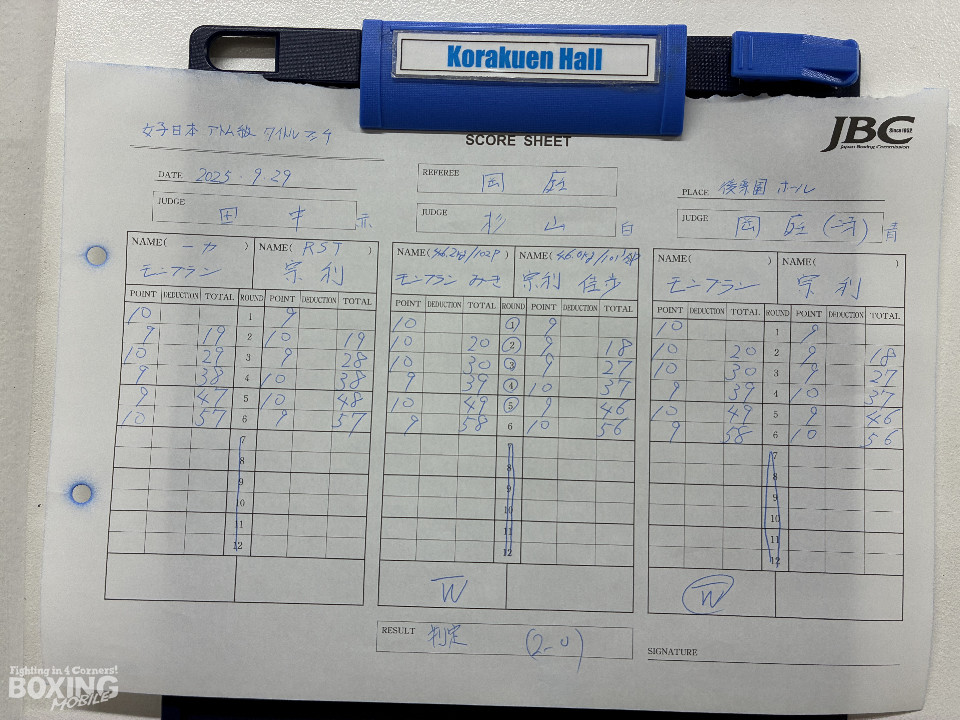 Korakuen Hall
女子日本 アトム級 タイトルマッチ
SCORE SHEET
JBC Since 1952
Japan Boxing Commission
DATE 2025.9.29
REFEREE 岡 庭
PLACE 後楽園 ホール
JUDGE 田 中 赤
JUDGE 杉 山 白
JUDGE 岡 庭 () 青
NAME( 一力 ) NAME( RST )
モンブラン 宗利
NAME(46.2kg/102P) NAME(46.0kg/101)
モンブラン みき 宗利 佳歩
NAME( ) NAME( )
モンブラン 宗利
POINT DEDUCTION TOTAL ROUND POINT DEDUCTION TOTAL
10 1 9
9 19 2 10 19
10 29 3 9 28
9 38 4 10 38
9 47 5 10 48
10 57 6 9 57
7
8
9
10
11
12
POINT DEDUCTION TOTAL ROUND POINT DEDUCTION TOTAL
10 1 9
10 20 2 9 18
10 30 3 9 27
9 39 4 10 37
10 49 5 9 46
9 58 6 10 56
7
8
9
10
11
12
W
POINT DEDUCTION TOTAL ROUND POINT DEDUCTION TOTAL
10 1 9
10 20 2 9 18
10 30 3 9 27
9 39 4 10 37
10 49 5 9 46
9 58 6 10 56
7
8
9
10
11
12
W
RESULT 判定 (2-0)
SIGNATURE
Fighting in 4 Corners!
BOXING
MOBILE